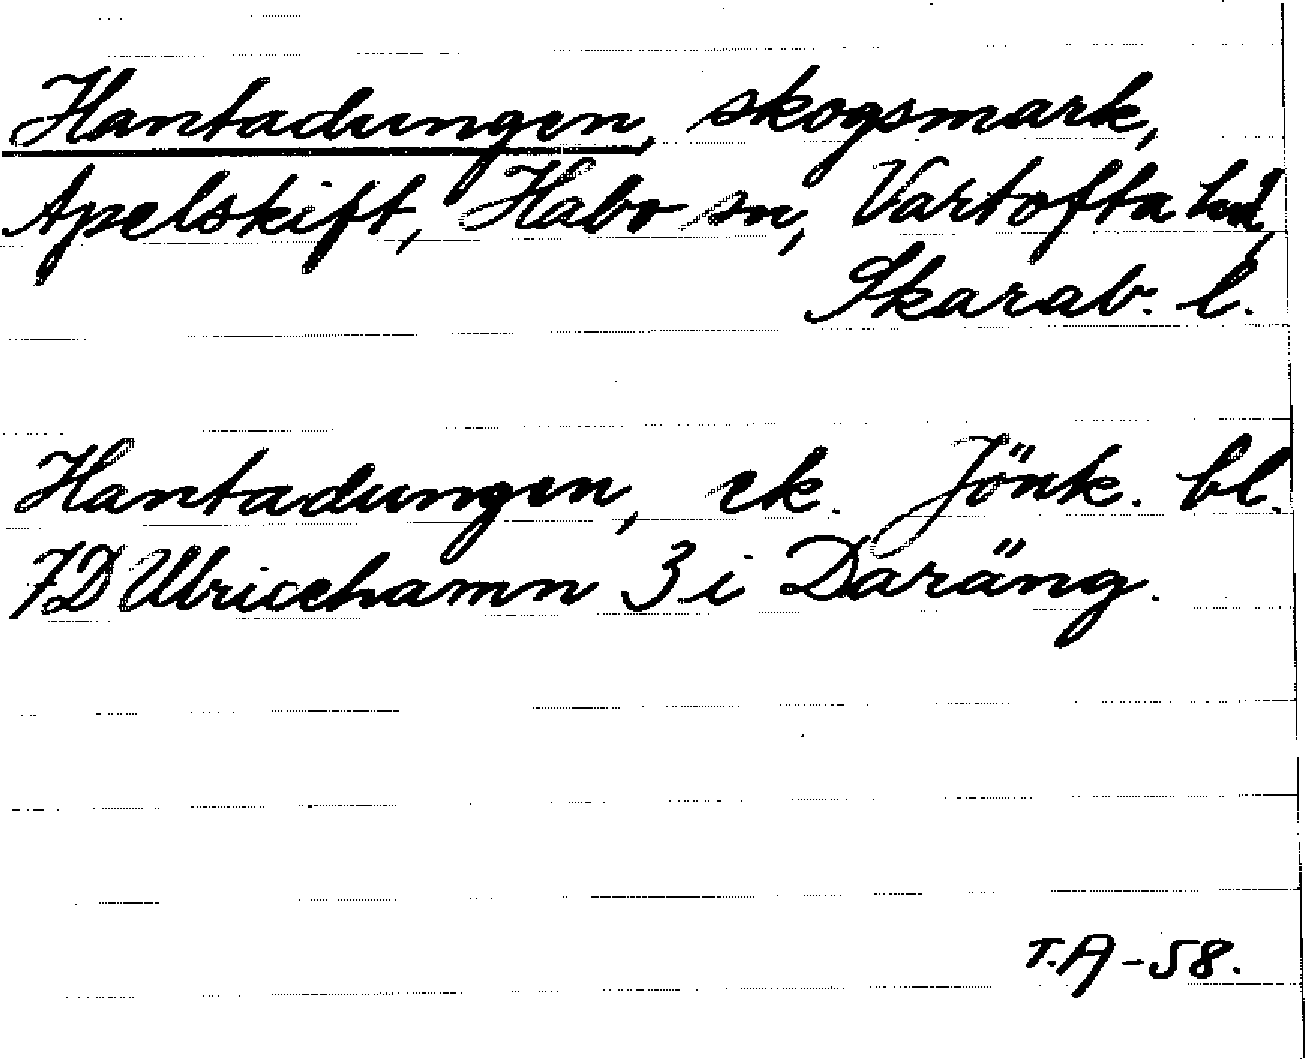 Hantadungen, skogsmark,
Apelskift, Habo sn, Vartofta hd,
Skarab. l.
Hantadungen, ek. Jönk. bl.
7D Ulricehamn 3 i Daräng.
T.A-58.